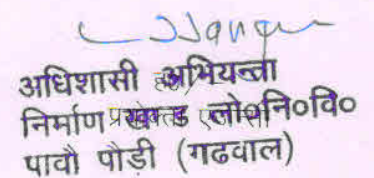 अधिशासी अभियन्ता
निर्माण खण्ड लो०नि०वि०
पावौ पौड़ी (गढवाल)